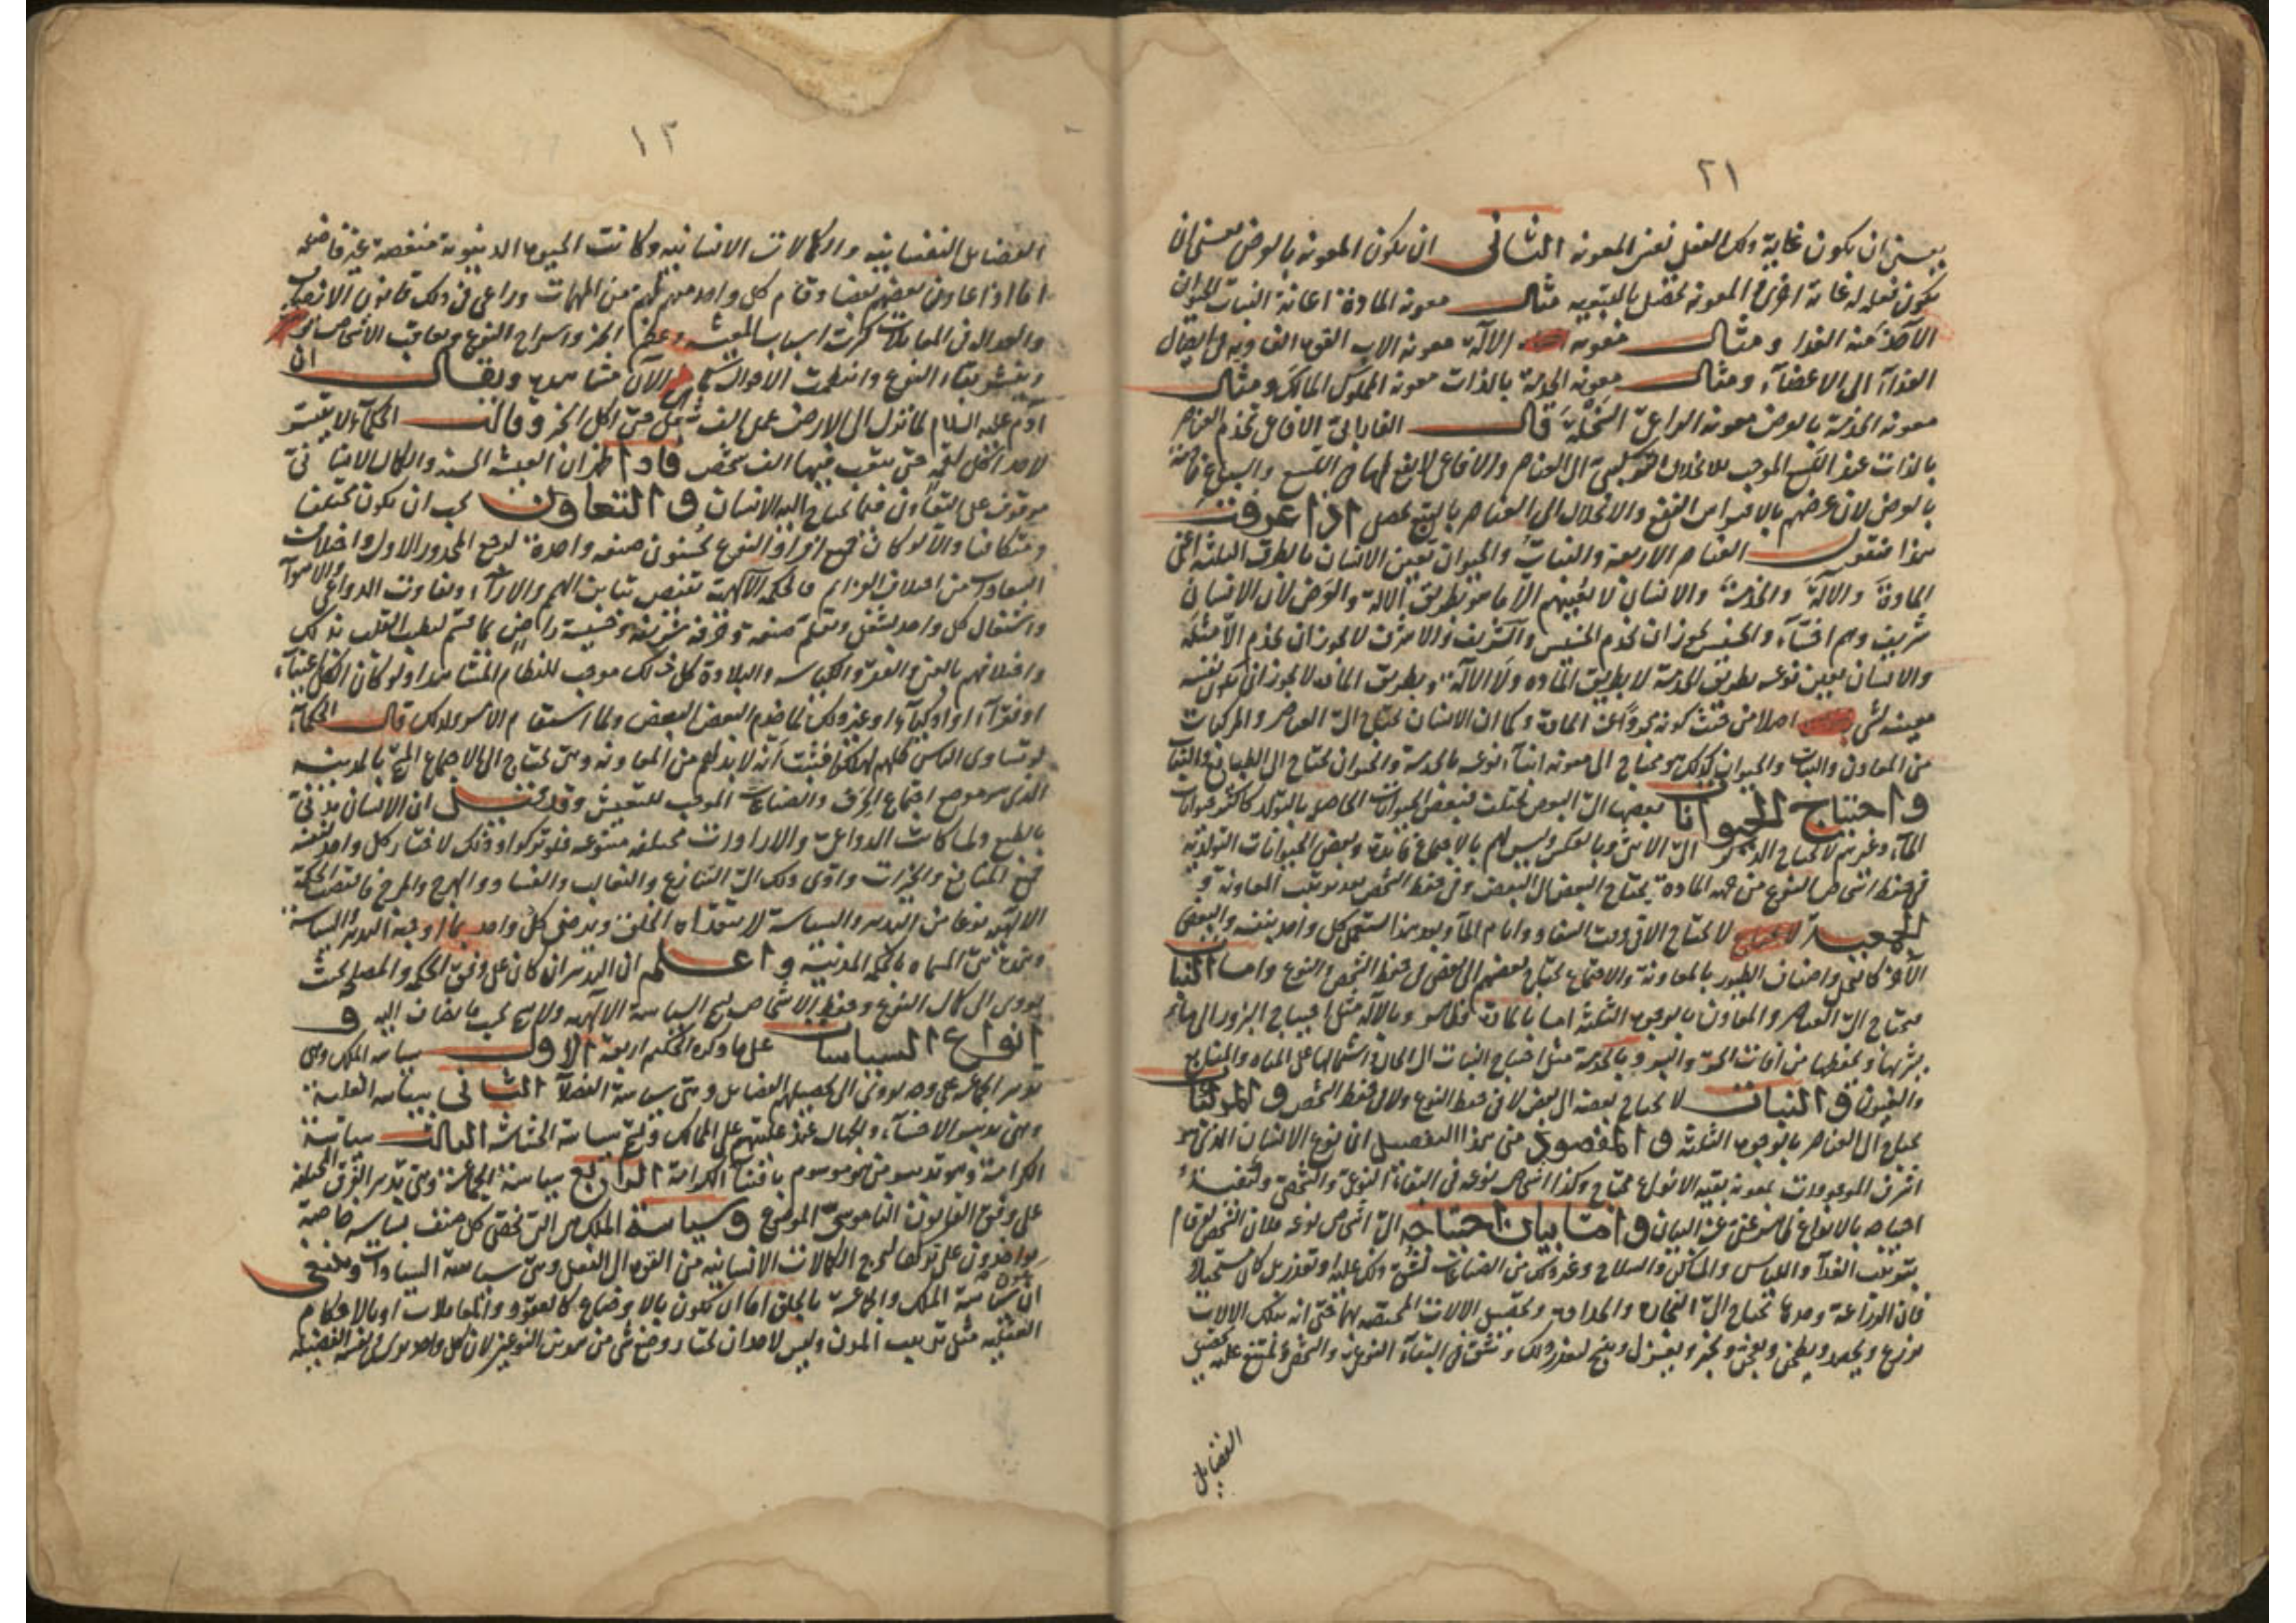 ٢١
يعنى ان يكون غاية ذلك الفعل نفس المعونة الثانى ان يكون المعونة بالعرض بمعنى ان
يكون لفعله غاية اخرى و المعونة تحصل بالتبعية مثال معونة المادة اعانة النبات للحيوان
الآخذ منه الغذا ومثال معونه الآلة معونه الاب القوة الغاذية فى ايصال
الغذاء الى الاعضآء ومثال معونه الخدمة بالذات معونه المملوك المالك ومثال
معونه الخدمة بالعرض معونه الراعى النحلة قال الفارابى الافاعى تخدم العناصر
بالذات عند اللسع الموجب للانحلال الى العناصر والافاعى لا نفع لها فى اللسع والسباع خادمة
بالعرض لان غرضهم بالافتراس النفع والانحلال الى العناصر بالتبع يحصل اذا عرفت
هذا فنقول العناصر الاربعة والنبات والحيوان تعين الانسان بالطرق الثلثة اعنى
المادة والآلة والخدمة والانسان لا يعينهم الا بطريق الآلة والعرض لان الانسان
شريف وهم اخسآء والخسيس يجوز ان يخدم الخسيس والشريف والاشرف لا يجوز ان يخدم الا مثله
والانسان يعين نوعه بطريق الخدمة لا بطريق المادة ولا الآلة وبطريق المادة لا يجوز ان يكون نفسه
معينه لشى اصلا من حيث كونه مجردا عن المادة وكما ان الانسان يحتاج الى العناصر والمركبات
من المعادن والنبات والحيوان كذلك هو محتاج الى معونه ابنآء نوعه بالخدمة والحيوان يحتاج الى الطبايع والنبات
واحتياج الحيوانات بعضها الى البعض يختلف فبعض الحيوانات الحاصل بالتولد كاكثر حيوانات
المآء وغيرهم لا يحتاج الذكر الى الانثى وبالعكس وليس لهم بالاجتماع فائدة وبعض الحيوانات التوالدية
فى حفظ اشخاص النوع من جهة المادة يحتاج البعض الى البعض وفى حفظ الشخص بعد تربيت المعاونة و
الجمعية لا يحتاج الا فى وقت السفاد وايام النمآ وبعد هذا استقل كل واحد بنفسه والبعض
الآخر كالنحل واصناف الطيور بالمعاونة والاجتماع يحتاج بعضهم الى بعض فى حفظ الشخص والنوع واما النبات
فيحتاج الى العناصر والمعادن بالوجوه الثلثة اما بالمادة فظاهر وبالآلة مثل احتياج البزور الى
يسترها ويحفظها من آفات الحر والبرد وبالخدمة مثل احتياج النبات الى الجبال لاشتمالها على المياه والمنابع
والعيون و النبات لا يحتاج بعضه الى بعض لا فى حفظ النوع ولا فى حفظ الشخص و المركبات
يحتاج الى العناصر بالوجوه الثلثة و المقصود من هذا التفصيل ان نوع الانسان الذى هو
اشرف الموجودات بمعونه بقيه الانواع محتاج وكذا اشخاص نوعه فى البقاء النوعى والشخصى
احتياجه بالانواع ظاهر غنى عن البيان واما بيان احتياجه الى اشخاص نوعه فلان الشخص لو قام
بترتيب الغذآ واللباس والمساكن والسلاح وغير ذلك من الصناعات لشق ذلك عليه وتعذر بل كان مستحيلا
فان الزراعة وحدها تحتاج الى النجارة والحدادة وتحصيل الآلات المختصة بهما حتى انه بتلك الآلات
يزرع ويحصد ويطحن ويعجن ويخبز ويغزل وينسج لتعذر ذلك وتشوش البقآء النوعى والشخصى وامتنع عليه تحصيل
الفضايل
١٢
الفضايل النفسانيه والكمالات الانسانيه وكانت الحيوة الدنيوية منغصة غير فاضله
اما اذا عاون بعضهم بعضا وقام كل واحد منهم بمهم من المهمات وراعى فى ذلك قانون الانصاف
والعدالة فى المعاملات كثرت اسباب المعيشة وعظم الخير واستراح النوع وتعاقب الاشخاص
وتيسر بقاء النوع وانتظمت الاحوال كما هو الآن مشاهد ويقال ان
آدم عليه السلام لما نزل الى الارض عمل الف شغل حتى اكل الخبز وقالت الحكمآء لا يتيسر
لاحد اكل لقمة حتى يتعب فيها الف شخص فاذا ظهر ان العيشة الحسنة والكمال الانسانى
موقوف على التعاون فيما يحتاج اليه الانسان و التعاون يجب ان يكون مختلفا
ومتكافئا والا لو كان جميع افراد النوع يحسنون صنعه واحدة لرجع المحذور الاول واختلاف
الصناعات من اختلاف العزائم فالحكمة الآلهية تقتضى تباين الهمم والارآء وتفاوت الدواعى والاهوآء
واشتغال كل واحد بشغل وتعلم صنعه وحرفه شريفة وخسيسة راض بما قسم لطيب القلب بذلك
واختلافهم بالغنى والفقر والكياسه والبلادة كل ذلك موجب للنظام المشاهد اذ لو كان الكل اغنيآء
او فقرآء او اذكيآء او غير ذلك لما خدم البعض البعض ولما استقام الامر ولذلك قال الحكمآء
لو تساوى الناس كلهم لهلكوا فثبت انه لا بد لهم من المعاونه وهى تحتاج الى الاجتماع المسمى بالمدينه
الذى هو موضع اجتماع الحرف والصناعات الموجب للتعيش وقد قيل ان الانسان مدنى
بالطبع ولما كانت الدواعى والارادات مختلفه متنوعه فلو تركوا وذلك لاختار كل واحد لنفسه
جميع المنافع والخيرات وادى ذلك الى التنازع والتغالب والفساد والهرج والمرج فاقتضت الحكمة
الالهيه نوعا من التدبير والسياسة لا يتعداه الخلق ويرضى كل واحد بما اوجبه التدبير والسياسة
المسماه بالحكمة المدنية واعلم ان التدبير ان كان على وفق الحكمة والمصلحة بحيث
يؤدى الى كمال النوع وحفظ الاشخاص يسمى السياسة الالهيه والا يسمى بحسب ما يضاف اليه و
انواع السياسات على ما ذكره الحكيم اربعة الاول سياسة الملك وهى
تدبير الجماعة على وجه يؤدى الى تحصيلهم الفضايل وهى سياسة الفضلآء الثانى سياسه الغلبة
وهى تدبير الاخسآء والجهال عند غلبتهم على الممالك وتسمى سياسة الخساسة الثالث سياسة
الكرامة وهو تدبير من هو موسوم باقتنآء الكرامة الرابع سياسة الجماعة وهى تدبير الفرق المختلفة
على وفق القانون الناموسى الموضوع وسياسة الملك هى التى تخص كل صنف بسياسه خاصة
كمالهم لتخرج الكمالات الانسانيه من القوة الى الفعل وهى سياسة السياسات وينبغى
ان سياسة الملك والجماعة بالخلق اما ان يكون بالاوضاع كالعقود والمعاملات او بالاحكام
العقليه مثل ترتيب المدن وليس لاحد ان يختار وضع شى من هذين النوعين لان كل واحد يرى فى نفسه الفضيلة